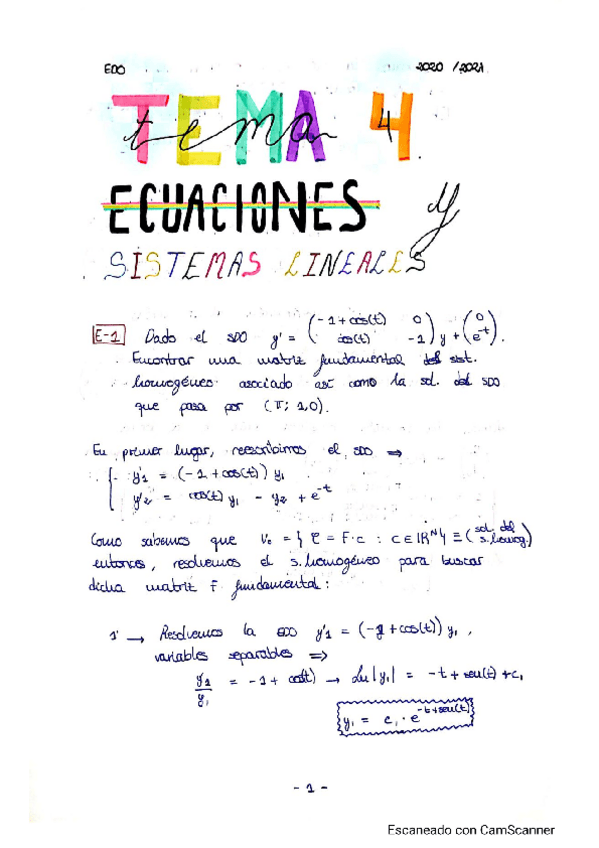 EDO 2020 / 2021
TEMA 4
tema 4
ECUACIONES y
SISTEMAS LINEALES
E-1 Dado el SDO y' = (-1+cos(t) 0; cos(t) -1) y + (0; e^-t).
Encontrar una matriz fundamental del sist.
homogéneo asociado así como la sol. del SDO
que pasa por (π; 1,0).
En primer lugar, reescribimos el SDO ⇒
{ y'1 = (-1+cos(t)) y1
y'2 = cos(t) y1 - y2 + e^-t
Como sabemos que = { φ = F·c : c ∈ IR^N } ≡ (sol. del s.homog.)
entonces, resolvemos el s.homogéneo para buscar
dicha matriz F fundamental:
1' → Resolvemos la EDO y'1 = (-1+cos(t)) y1,
variables separables ⇒
y'1/y1 = -1 + cos(t) → Ln|y1| = -t+sen(t)+c1
y1 = c1 · e^-t+sen(t)
- 1 -
Escaneado con CamScanner